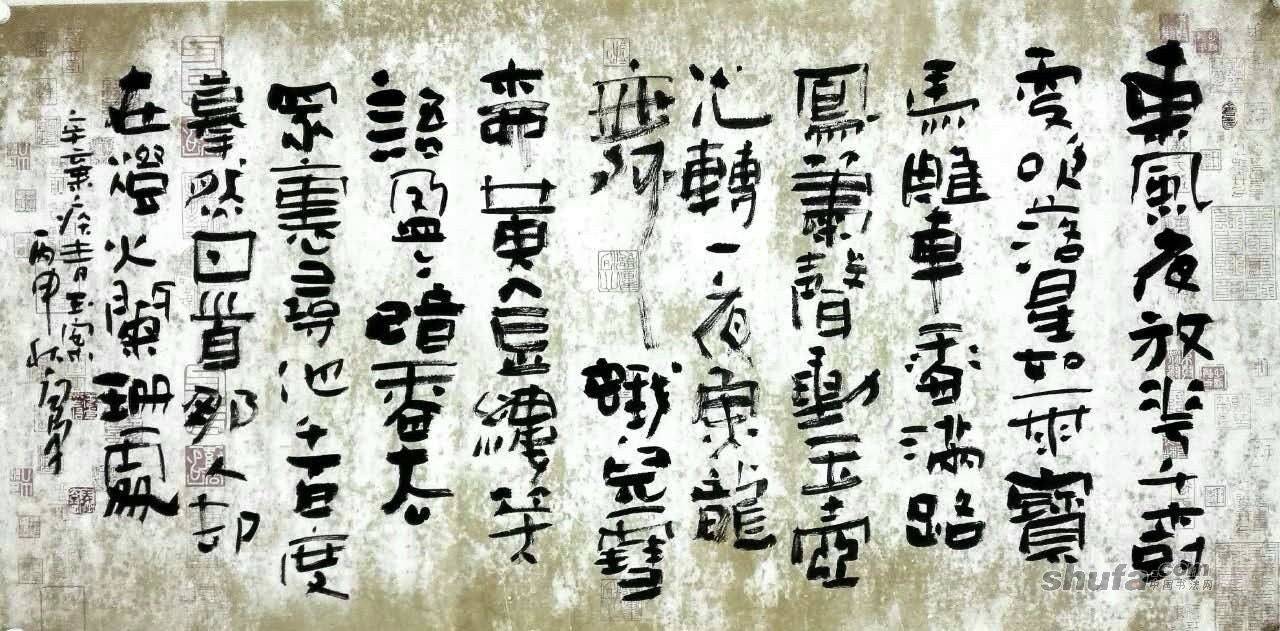 東風夜放花千樹
更吹落星如雨寶
馬雕車香滿路
鳳簫聲動玉壺
光轉一夜魚龍
舞蛾兒雪
柳黃金縷笑
語盈々暗香去
眾裏尋他千百度
驀然回首那人卻
在燈火闌珊處
辛棄疾青玉案
丙申秋
shufa.com
中国书法网